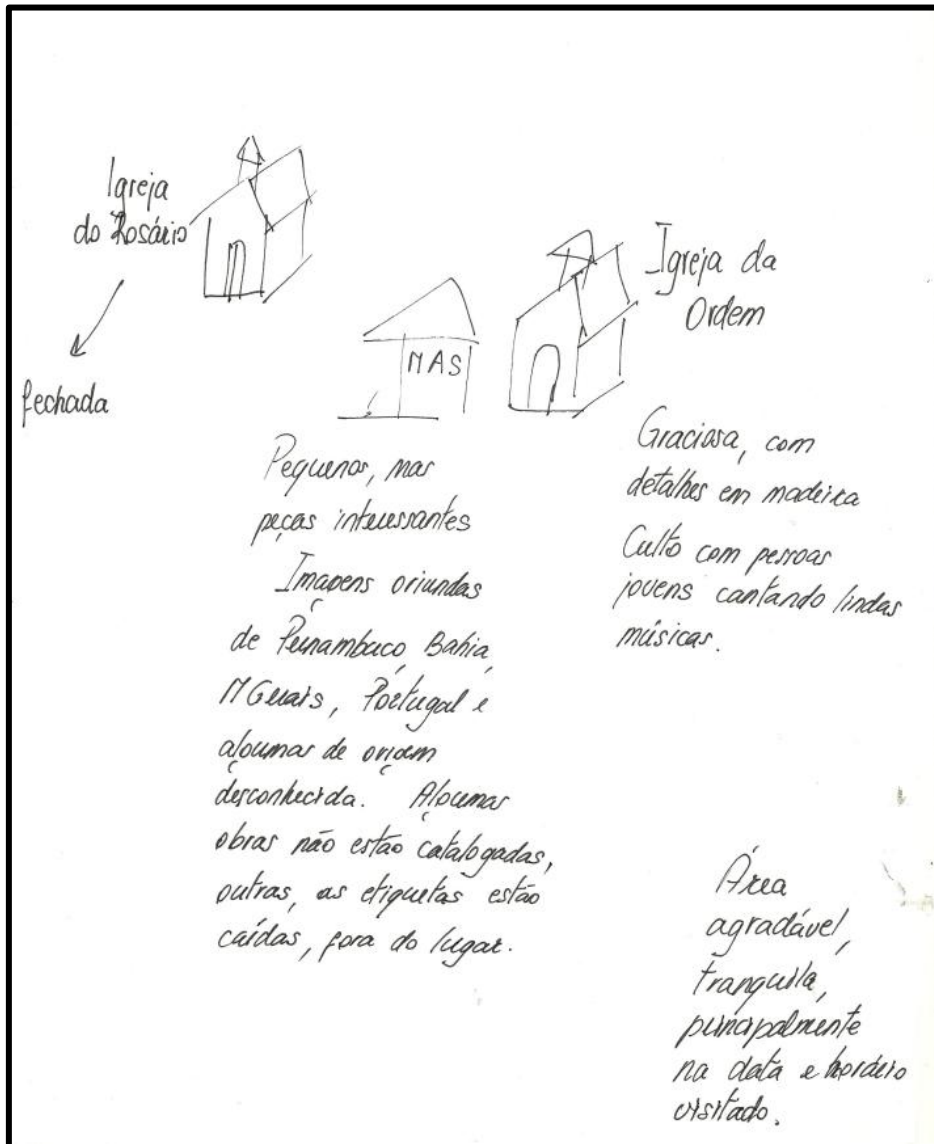 Igreja
do Rosário
fechada
MAS
Igreja da
Ordem
Pequenos, mas
peças interessantes
Imagens oriundas
de Pernambuco, Bahia,
M Gerais, Portugal e
algumas de origem
desconhecida. Algumas
obras não estão catalogadas,
outras, as etiquetas estão
caídas, fora do lugar.
Graciosa, com
detalhes em madeira
Culto com pessoas
jovens cantando lindas
músicas.
Área
agradável,
tranquila,
principalmente
na data e horário
visitado.